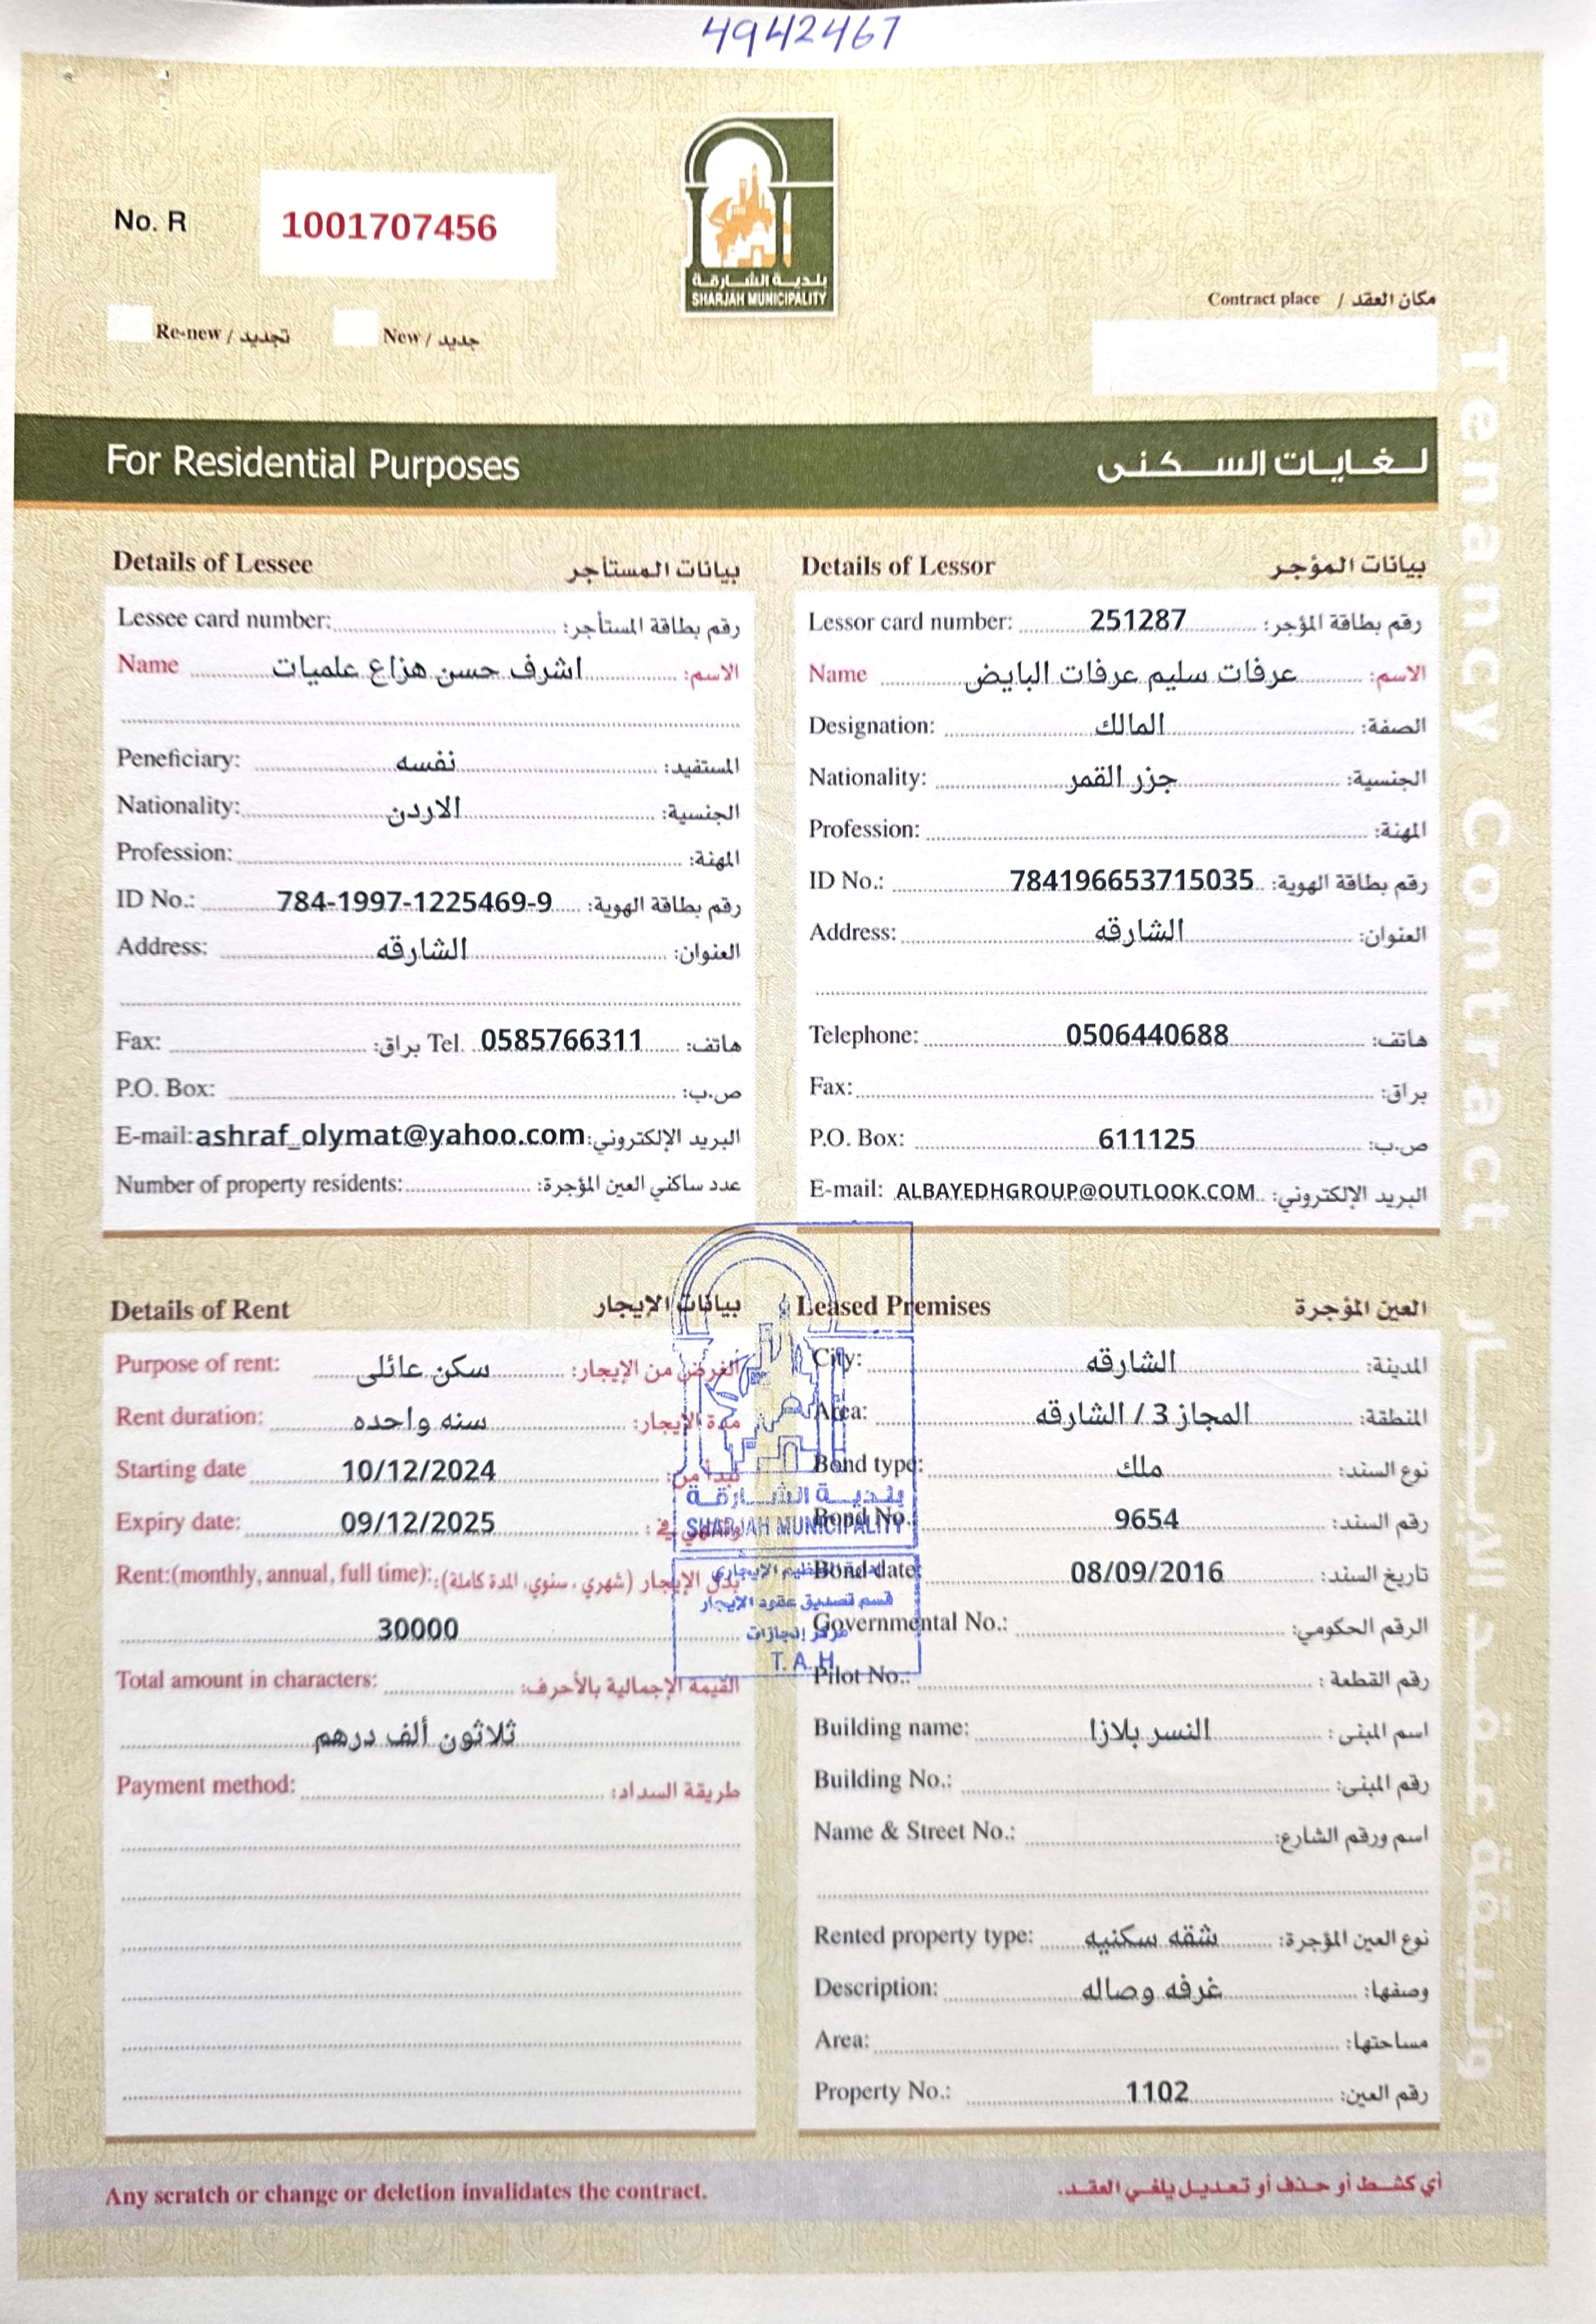 4942467
No. R 1001707456
بلدية الشارقة
SHARJAH MUNICIPALITY
Contract place / مكان العقد
Re-new / تجديد New / جديد
For Residential Purposes لغايات السكنى
Tenancy Contract
وثيقة عقد الايجار
Details of Lessee بيانات المستأجر
Lessee card number: رقم بطاقة المستأجر:
Name اشرف حسن هزاع علميات الاسم:
Peneficiary: نفسه المستفيد:
Nationality: الاردن الجنسية:
Profession: المهنة:
ID No.: 784-1997-1225469-9 رقم بطاقة الهوية:
Address: الشارقه العنوان:
Fax: براق: Tel. 0585766311 هاتف:
P.O. Box: ص.ب:
E-mail: ashraf_olymat@yahoo.com البريد الإلكتروني:
Number of property residents: عدد ساكني العين المؤجرة:
Details of Lessor بيانات المؤجر
Lessor card number: 251287 رقم بطاقة المؤجر:
Name عرفات سليم عرفات البايض الاسم:
Designation: المالك الصفة:
Nationality: جزر القمر الجنسية:
Profession: المهنة:
ID No.: 784196653715035 رقم بطاقة الهوية:
Address: الشارقه العنوان:
Telephone: 0506440688 هاتف:
Fax: براق:
P.O. Box: 611125 ص.ب:
E-mail: ALBAYEDHGROUP@OUTLOOK.COM البريد الإلكتروني:
Details of Rent بيانات الإيجار
Purpose of rent: سكن عائلى الغرض من الإيجار:
Rent duration: سنه واحده مدة الإيجار:
Starting date 10/12/2024 تبدأ من:
Expiry date: 09/12/2025 وتنتهي في:
Rent:(monthly, annual, full time): بدل الإيجار (شهري، سنوي، المدة كاملة):
30000
Total amount in characters: القيمة الإجمالية بالأحرف:
ثلاثون ألف درهم
Payment method: طريقة السداد:
Leased Premises العين المؤجرة
City: الشارقه المدينة:
Area: المجاز 3 / الشارقه المنطقة:
Bond type: ملك نوع السند:
Bond No.: 9654 رقم السند:
Bond date: 08/09/2016 تاريخ السند:
Governmental No.: الرقم الحكومي:
Pilot No.: رقم القطعة:
Building name: النسر بلازا اسم المبنى:
Building No.: رقم المبنى:
Name & Street No.: اسم ورقم الشارع:
Rented property type: شقه سكنيه نوع العين المؤجرة:
Description: غرفه وصاله وصفها:
Area: مساحتها:
Property No.: 1102 رقم العين:
بلدية الشارقة
SHARJAH MUNICIPALITY
التنظيم الإيجاري
قسم تصديق عقود الايجار
مركز إنجازات
T.A.H
Any scratch or change or deletion invalidates the contract. أي كشط أو حذف أو تعديل يلغي العقد.